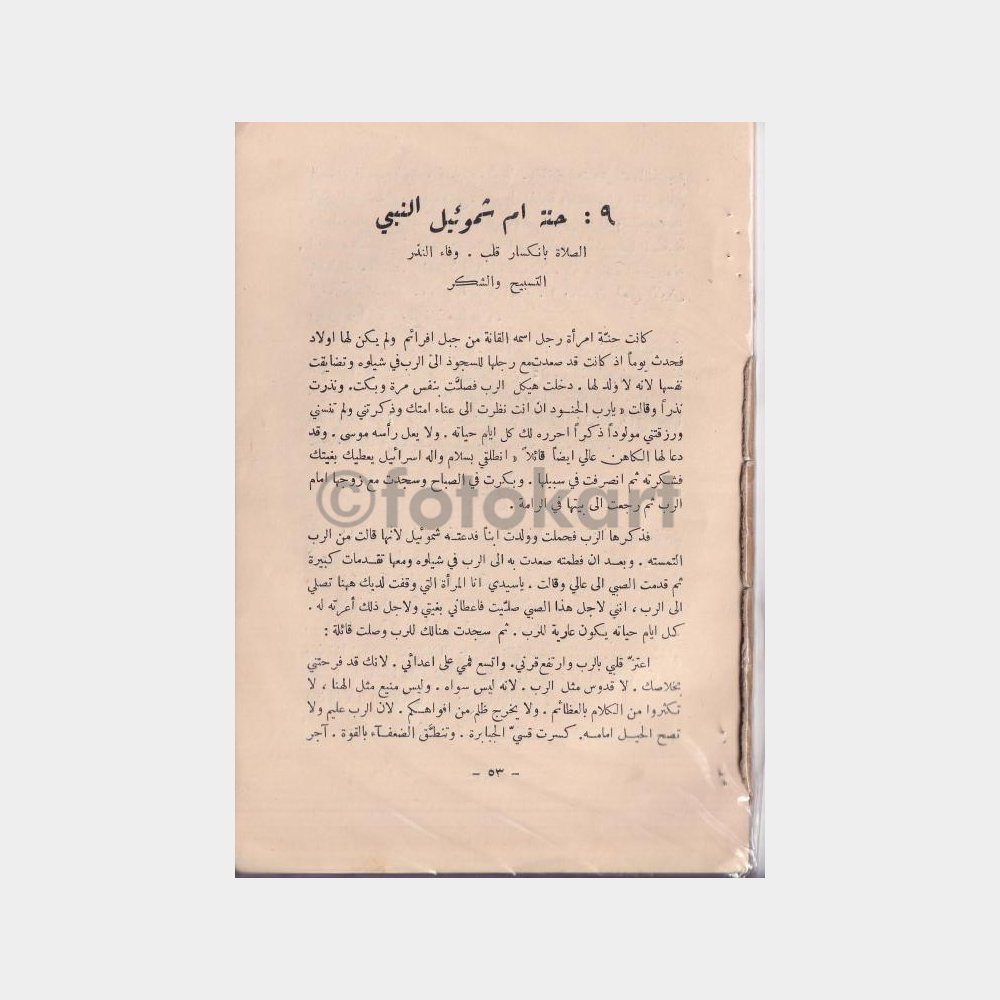 ٩ : حنة ام شموئيل النبي
الصلاة بانكسار قلب . وفاء النذر
التسبيح والشكر
كانت حنّة امرأة رجل اسمه القانة من جبل افرائم ولم يكن لها اولاد
فحدث يوماً اذ كانت قد صعدت مع رجلها للسجود الى الرب في شيلوه وتضايقت
نفسها لانه لا ولد لها . دخلت هيكل الرب فصلَّت بنفس مرة وبكت. ونذرت
نذراً وقالت « يارب الجنود ان انت نظرت الى عناء امتك وذكرتني ولم تنسني
ورزقتني مولوداً ذكراً احرره لك كل ايام حياته . ولا يعل رأسه موسى . وقد
دعا لها الكاهن عالي ايضاً قائلاً « انطلقي بسلام واله اسرائيل يعطيك بغيتك
فشكرته ثم انصرفت في سبيلها . وبكرت في الصباح وسجدت مع زوجها امام
الرب ثم رجعت الى بيتها في الرامة .
فذكرها الرب فحملت وولدت ابناً فدعته شموئيل لانها قالت من الرب
التمسته . وبعد ان فطمته صعدت به الى الرب في شيلوه ومعها تقدمات كبيرة
ثم قدمت الصبي الى عالي وقالت . ياسيدي انا المرأة التي وقفت لديك ههنا تصلي
الى الرب ، انني لاجل هذا الصبي صلَّيت فاعطاني بغيتي ولاجل ذلك أعرته له .
كل ايام حياته يكون عارية للرب . ثم سجدت هنالك للرب وصلت قائلة :
اعتزّ قلبي بالرب وارتفع قرني. واتسع فمي على اعدائي . لانك قد فرحتني
بخلاصك . لا قدوس مثل الرب . لانه ليس سواه . وليس منيع مثل الهنا ، لا
تكثروا من الكلام بالعظائم . ولا يخرج ظلم من افواهكم . لان الرب عليم ولا
تصح الحيل امامه. كسرت قسيّ الجبابرة . وتنطَّق الضعفآء بالقوة . آجر
– ٥٣ –
©fotokart